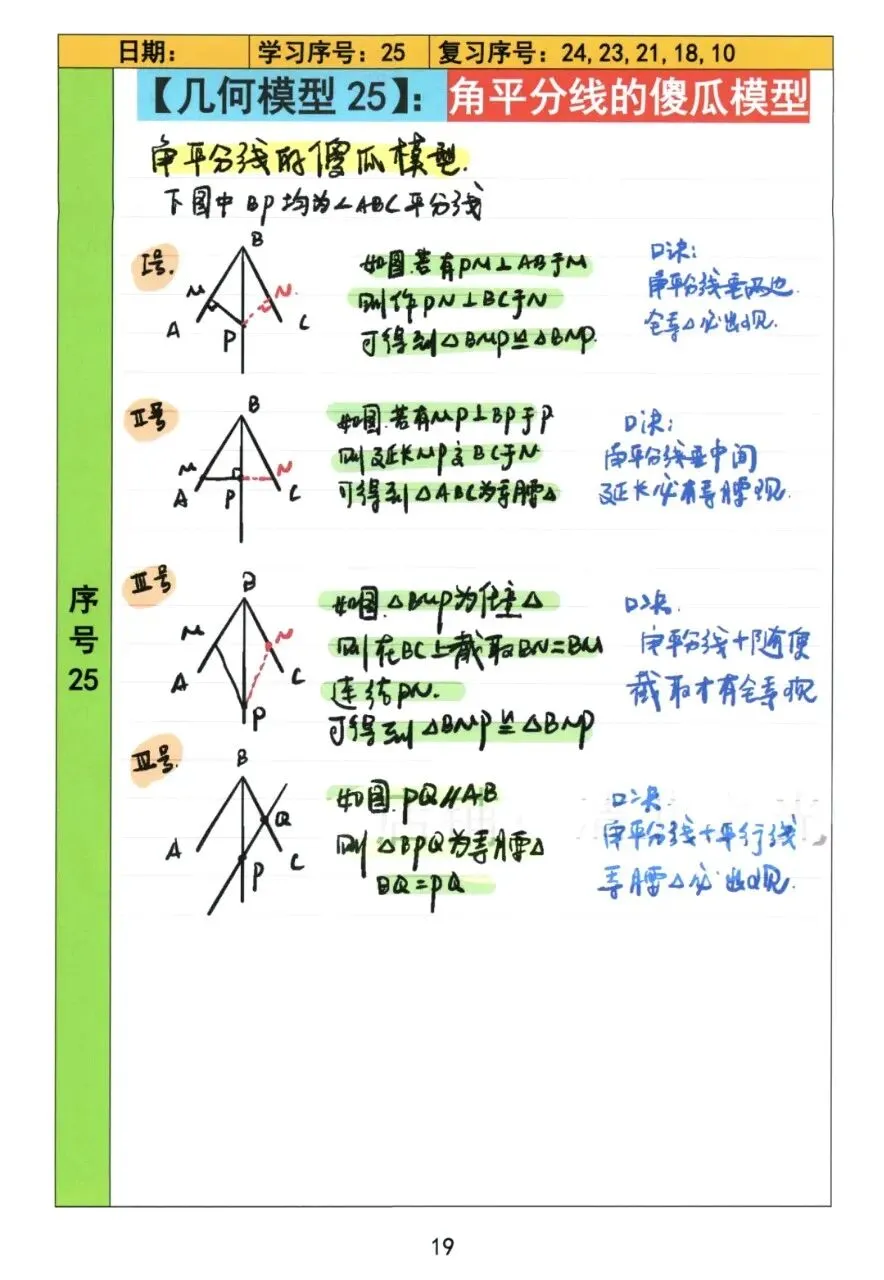 日期：
学习序号：25
复习序号：24,23,21,18,10
【几何模型 25】：角平分线的傻瓜模型
角平分线的傻瓜模型.
下图中 BP均为∠ABC平分线
I号.
B
M
N
A
P
C
如图.若有PM⊥AB于M
则作 PN⊥BC于N
可得到△BMP≌△BNP.
口诀：
角平分线垂两边
全等△必出现.
II号
B
M
N
A
P
C
如图.若有MP⊥BP于P
则延长MP交BC于N
可得到△ABC为等腰△
口诀：
角平分线垂中间
延长必有等腰现.
III号
B
M
N
A
C
P
如图.△BMP为任意△
则在BC上截取BN=BM
连结PN.
可得到△BMP≌△BNP
口诀.
角平分线+随便
截取才有全等现
IIII号.
B
Q
A
P
C
如图.PQ∥AB
则△BPQ为等腰△
BQ=PQ
口诀：
角平分线+平行线
等腰△必出现.
序
号
25
19